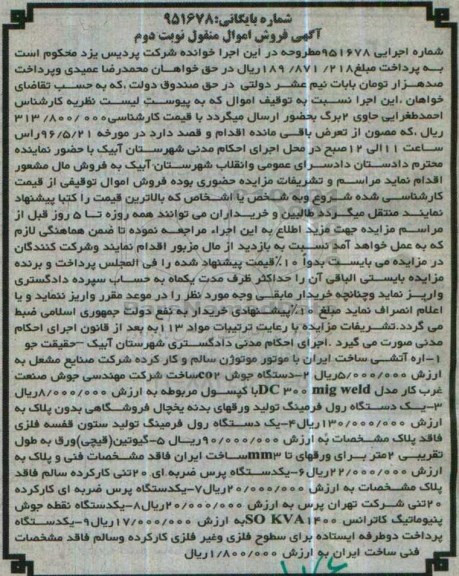 شماره بایگانی:۹۵۱۶۷۸
آگهی فروش اموال منقول نوبت دوم
شماره اجرایی ۹۵۱۶۷۸مطروحه در این اجرا خوانده شرکت پردیس یزد محکوم است
به پرداخت مبلغ۱۸۹/۸۷۱/۲۱۸ریال در حق خواهان محمدرضا عمیدی وپرداخت
صدهزار تومان بابات نیم عشر دولتی در حق صندوق دولت ،که به حسب تقاضای
خواهان ،این اجرا نسبت به توقیف اموال که به پیوست لیست نظریه کارشناس
احمدطغرایی حاوی ۲برگ بحضور ارسال میگردد با قیمت کارشناسی۳۱۳/۸۰۰/۰۰۰
ریال ،که مصون از تعرض باقی مانده اقدام و قصد دارد در مورخه ۹۶/۵/۲۱راس
ساعت ۱۱الی ۱۲صبح در محل اجرای احکام مدنی شهرستان آبیک با حضور نماینده
محترم دادستان دادسرای عمومی وانقلاب شهرستان آبیک به فروش مال مشعور
اقدام نماید مراسم و تشریفات مزایده حضوری بوده فروش اموال توقیفی از قیمت
کارشناسی شده شروع وبه شخص یا اشخاص که بالاترین قیمت را کتبا پیشنهاد
نمایند منتقل میگردد طالبین و خریداران می توانند همه روزه تا ۵ روز قبل از
مراسم مزایده جهت مزید اطلاع به این اجراء مراجعه نموده تا ضمن هماهنگی لازم
که به عمل خواهد آمد نسبت به بازدید از مال مزبور اقدام نمایند وشرکت کنندگان
در مزایده می بایست بدوا ۱۰٪قیمت پیشنهاد شده را فی المجلس پرداخت و برنده
مزایده بایستی الباقی آن را حداکثر ظرف مدت یکماه به حساب سپرده دادگستری
واریز نماید وچنانچه خریدار مابقی وجه مورد نظر را در موعد مقرر واریز ننماید و یا
اعلام انصراف نماید مبلغ ۱۰٪پیشنهادی خریدار به نفع دولت جمهوری اسلامی ضبط
می گردد.تشریفات مزایده با رعایت ترتیبات مواد ۱۱۳به بعد از قانون اجرای احکام
مدنی صورت می گیرد .اجرای احکام مدنی دادگستری شهرستان آبیک –حقیقت جو
۱-اره آتشی ساخت ایران با موتور موتوژن سالم و کار کرده شرکت صنایع مشعل به
ارزش ۵/۰۰۰/۰۰۰ریال ۲-دستگاه جوش co۲ساخت شرکت مهندسی جوش صنعت
غرب کار مدل DC ۳۰۰ mig weldبا کپسول مربوطه به ارزش ۸/۰۰۰/۰۰۰ریال
۳-یک دستگاه رول فرمینگ تولید ورقهای بدنه یخچال فروشگاهی بدون پلاک به
ارزش ۱۳۰/۰۰۰/۰۰۰ریال۴-یک دستگاه رول فرمینگ تولید ستون قفسه فلزی
فاقد پلاک مشخصات به ارزش ۹۰/۰۰۰/۰۰۰ریال ۵-گیوتین(قیچی)ورق به طول
تقریبی ۲متر برای ورقهای تا ۳mmساخت ایران فاقد مشخصات فنی و پلاک به
ارزش ۲۲/۰۰۰/۰۰۰ریال۶-یکدستگاه پرس ضربه.ای ۲۰تنی کارکرده سالم فاقد
پلاک مشخصات به ارزش ۲۰/۰۰۰/۰۰۰ریال۷-یکدستگاه پرس ضربه ای کارکرده
۲۰تنی شرکت تهران پرس به ارزش ۲۰/۰۰۰/۰۰۰ریال۸-یکدستگاه نقطه جوش
پنیوماتیک کاترانس SO KVA۱۴۰۰به ارزش ۱۷/۰۰۰/۰۰۰ریال۹-یکدستگاه
پرداخت دوطرفه ایستاده برای سطوح فلزی وغیر فلزی کارکرده وسالم فاقد مشخصات
فنی ساخت ایران به ارزش ۱/۸۰۰/۰۰۰ریال